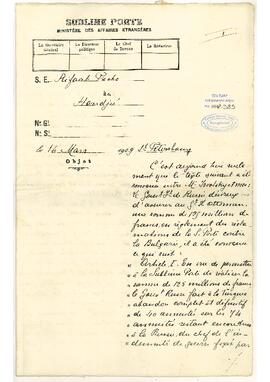 SUBLIME PORTE
MINISTÈRE DES AFFAIRES ÉTRANGÈRES
Le Secrétaire Général
Le Directeur politique
Le Chef de Bureau
Le Rédacteur
S. E. Rifaat Pacha
au
No. Gl.
No. Sl.
Le 16 Mars 1909 St. Pétersbourg
Objet
C'est aujourd'hui seule-
ment que le
entre M. et moi
le Gouvt. de Russie
d'assurer au Gt. Ottoman
une somme de 125 million de
francs, en règlement des récla-
mations de la S. Porte contre
la Bulgarie, il a été convenu
ce qui suit:
" Article I. En vue de permettre
" à la Sublime Porte de réaliser la
" somme de 125 millions de francs
" le Gouvt. Russe fait à la Turquie
" abandon complet et définitif
" de 40 annuités sur les 74
" annuités restant encore dues
" à la Russie, du chef de l'in-
" demnité de guerre fixée par